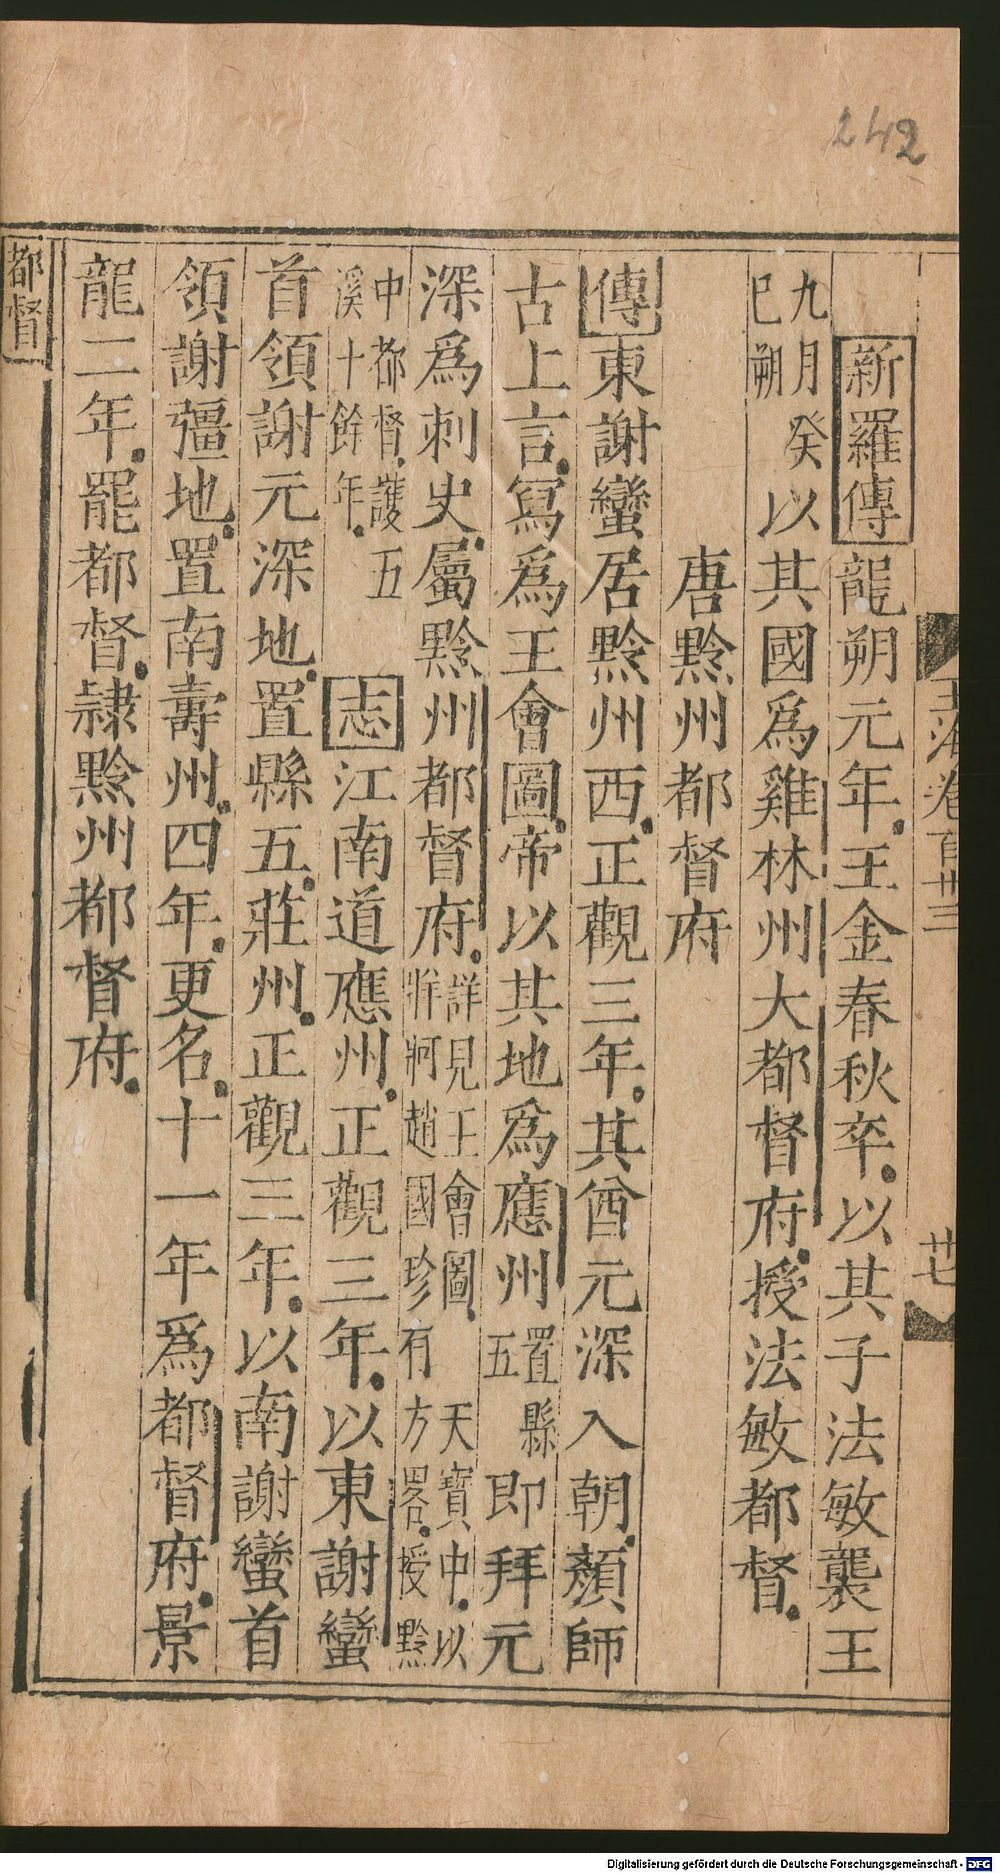 242
玉海卷百卅三
廿七
新羅傳龍朔元年王金春秋卒以其子法敏襲王
九月癸巳朔以其國爲雞林州大都督府授法敏都督
唐黔州都督府
傳東謝蠻居黔州西正觀三年其酋元深入朝顏師
古上言寫爲王會圖帝以其地爲應州置縣五即拜元
深爲刺史屬黔州都督府詳見王會圖牂牁趙國珍有方畧天寶中以授黔
中都督護五溪十餘年志江南道應州正觀三年以東謝蠻
首領謝元深地置縣五莊州正觀三年以南謝蠻首
領謝彊地置南壽州四年更名十一年爲都督府景
龍二年罷都督隷黔州都督府
都督
Digitalisierung gefördert durch die Deutsche Forschungsgemeinschaft - DFG